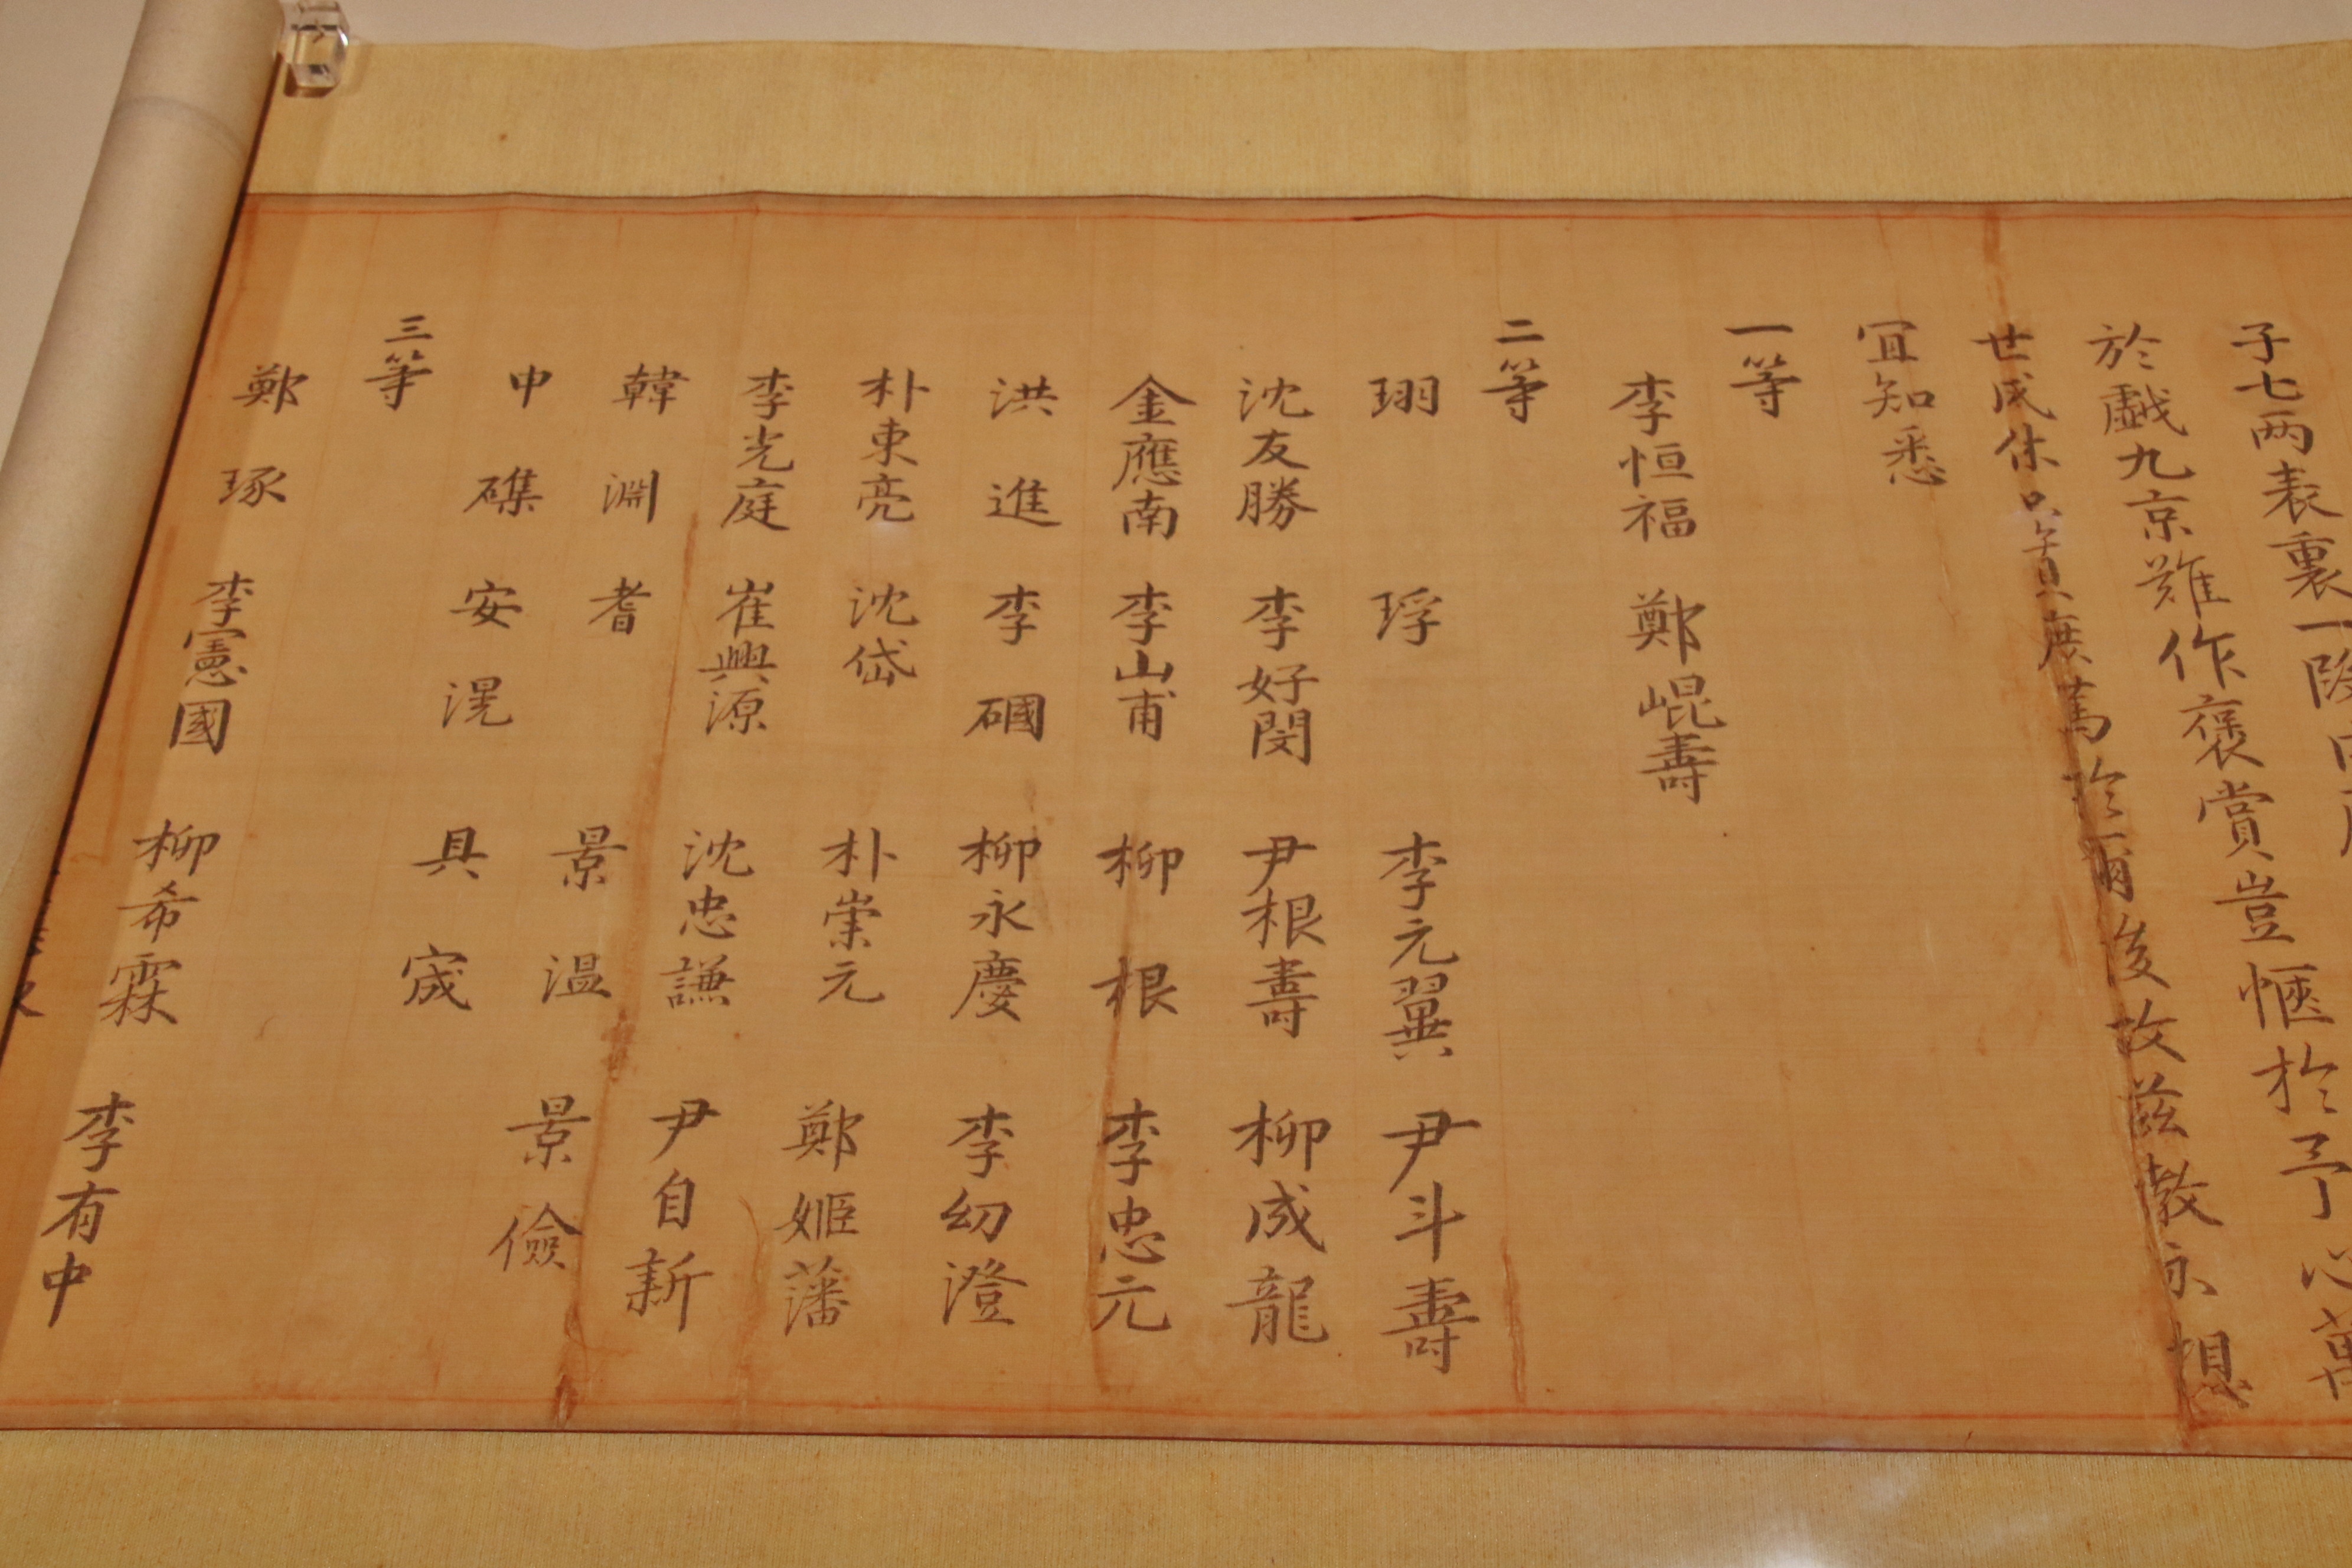 子七两表裏一
於戱九京難作褒賞豈愜於予心萬
世咸休只冀庶篤於爾後故茲教示想
冝知悉
一等
李恒福 鄭崐壽
二等
珝 琈 李元翼 尹斗壽
沈友勝 李好閔 尹根壽 柳成龍
金應南 李山甫 柳根 李忠元
洪進 李𥕏 柳永慶 李幼澄
朴東亮 沈岱 朴崇元 鄭姬藩
李光庭 崔興源 沈忠謙 尹自新
韓淵 耆 景温 景儉
申磼 安滉 具宬
三等
鄭琢 李憲國 柳希霖 李有中